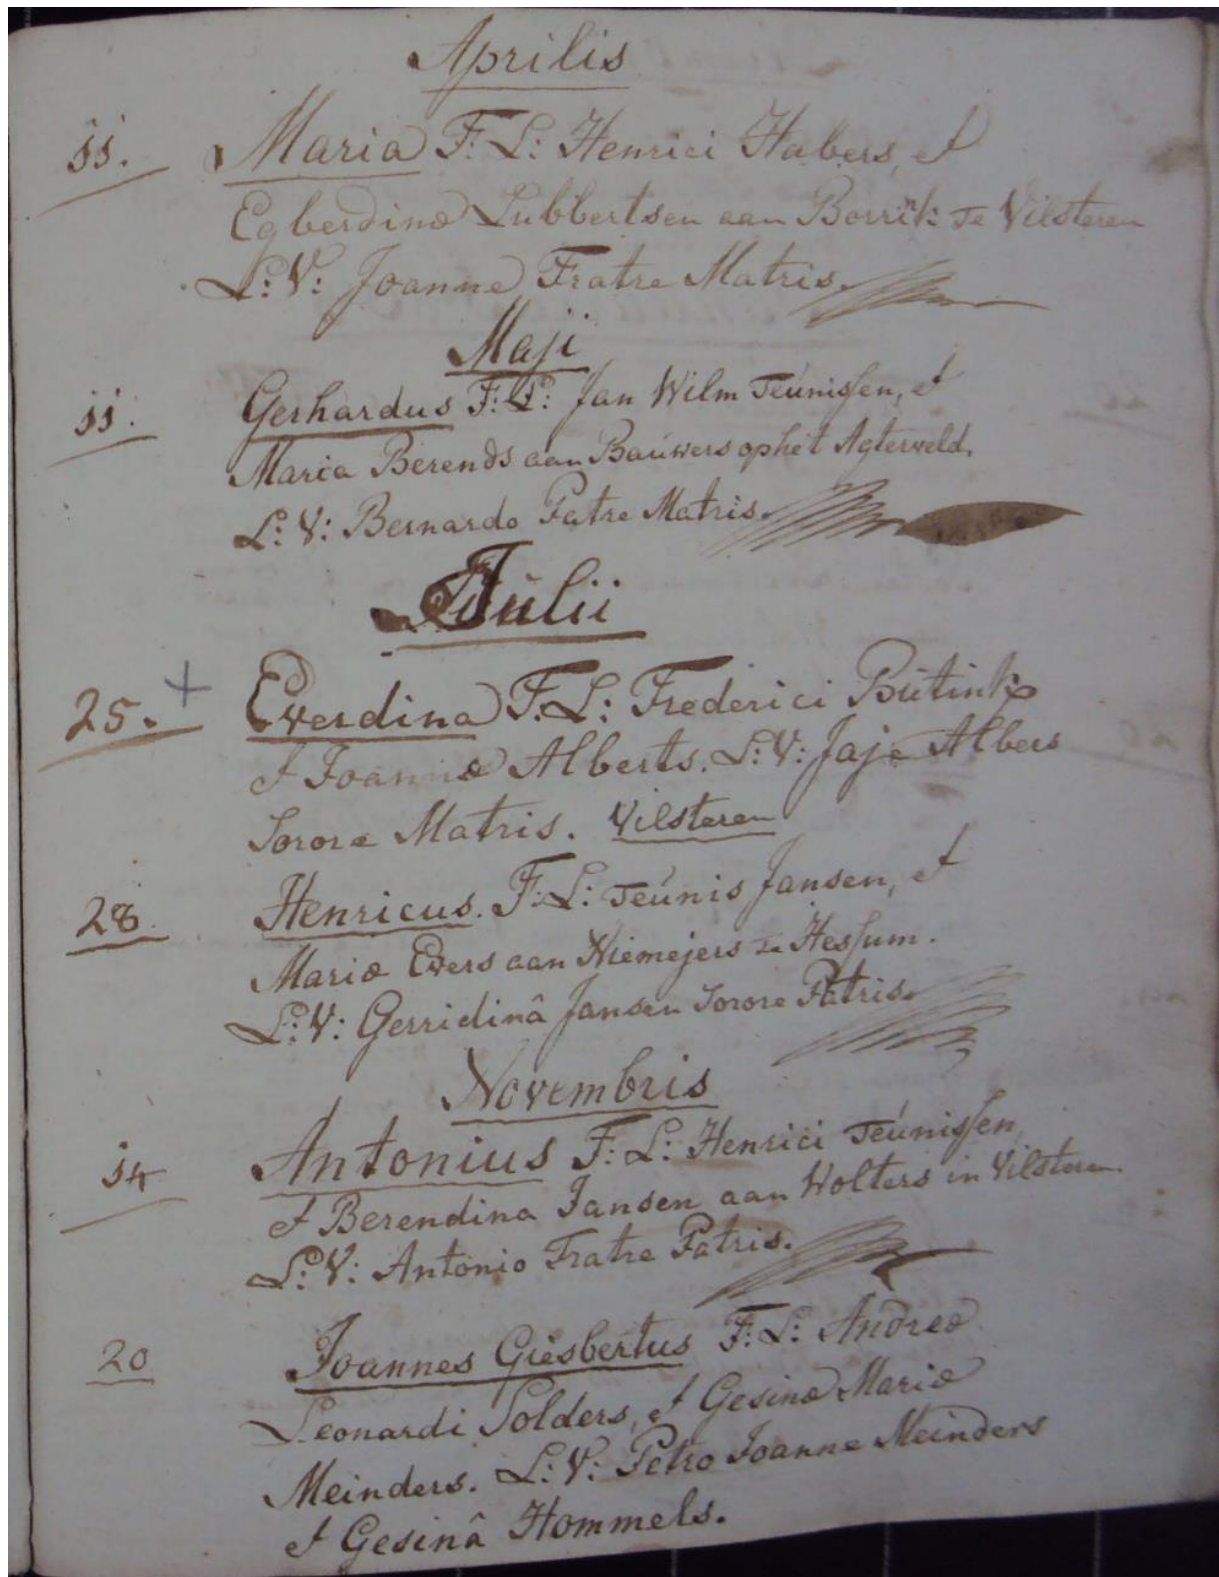 Aprilis
11. Maria F: L: Henrici Habers, et
Egberdinæ Lubbertsen aan Borrink Te Vilsteren
L: V: Joanne Fratre Matris.
Maji
11. Gerhardus F: L: Jan Wilm Teúnissen, et
Maria Berends aan Baúwers op het Agterveld.
L: V: Bernardo Patre Matris.
Júlii
25. + Everdina F. L: Frederici Bútink
et Joannæ Alberts. L: V: Jaje Albers
Sorore Matris. Vilsteren
28. Henricus. F: L: Teúnis Jansen, et
Mariæ Evers aan Niemejers Te Hessum.
L: V: Gerridinâ Jansen Sorore Patris.
Novembris
14 Antonius F: L: Henrici Teúnissen,
et Berendina Jansen aan Wolters in Vilsteren.
L: V: Antonio Fratre Patris.
20 Joannes Giesbertus F: L: Andreæ
Leonardi Solders, et Gesinæ Mariæ
Meinders. L: V: Petro Joanne Meinders
et Gesinâ Hommels.